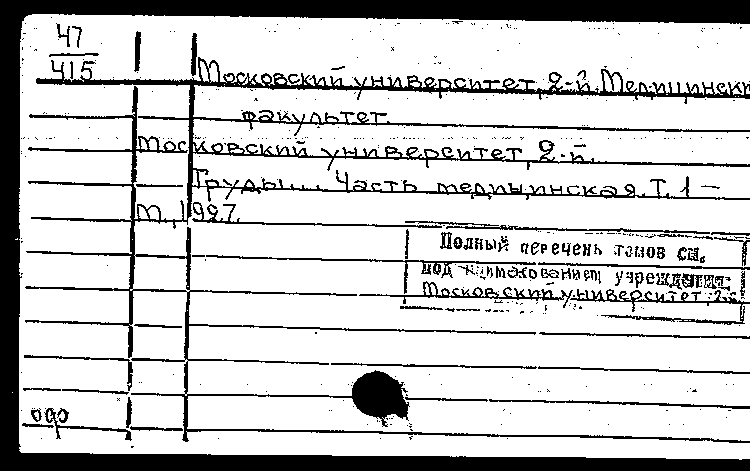 47
415
Московский университет, 2-й. Медицинский
факультет.
Московский университет, 2-й.
Труды... Часть медицинская. Т. 1 —
М., 1927.
Полный перечень томов см.
под наименованием учреждения:
Московский университет, 2-й